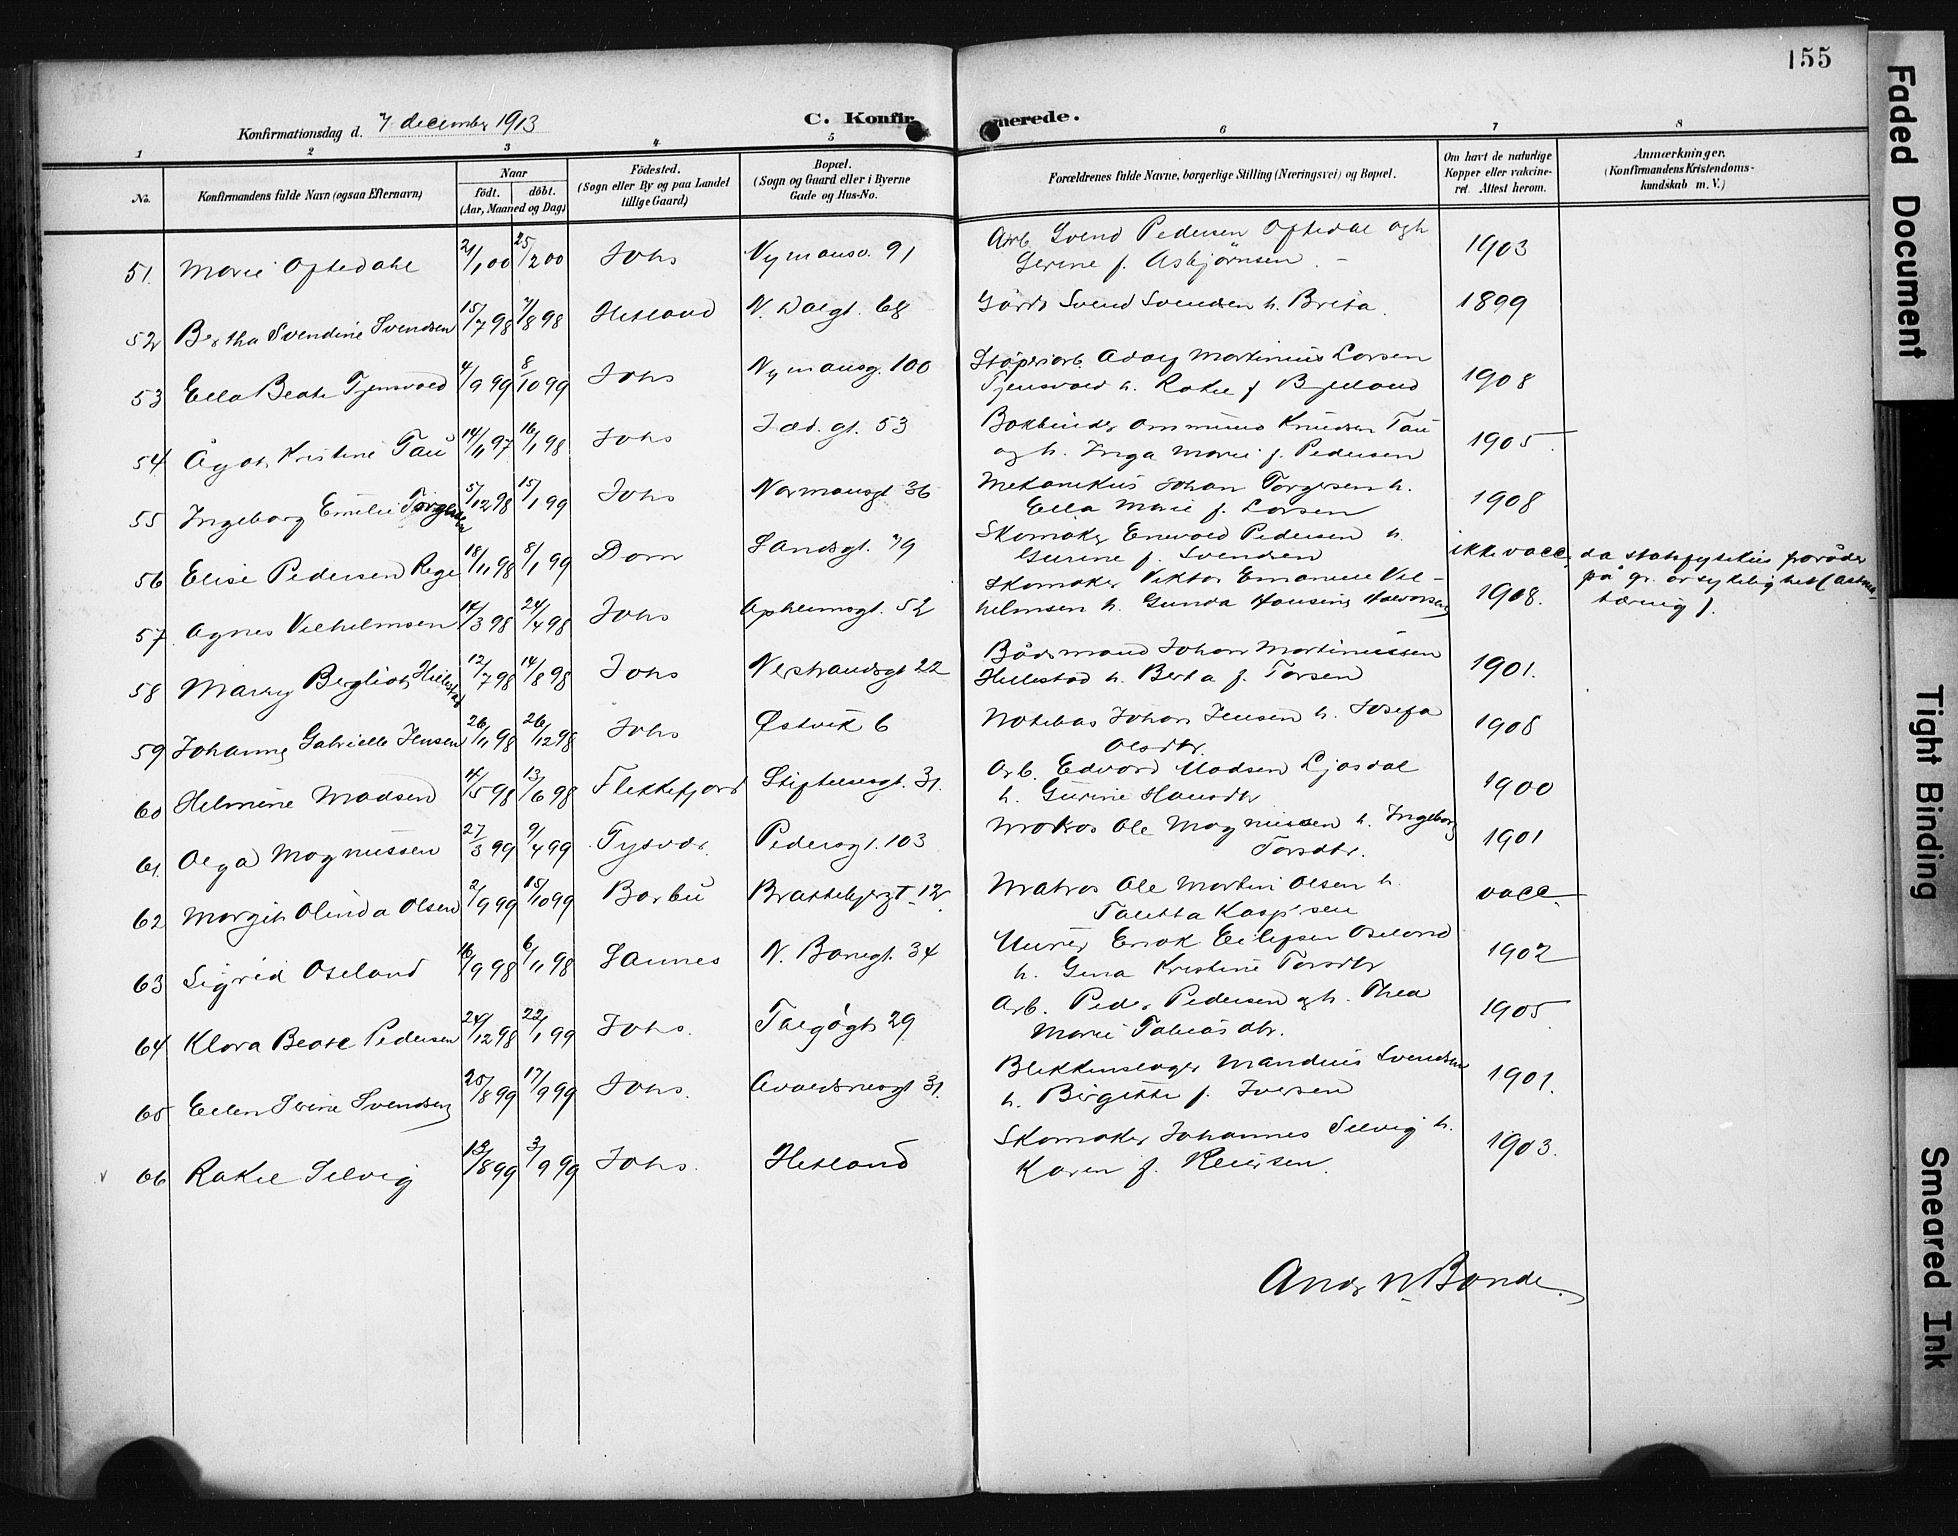 155
Konfirmationsdag d. 7 december 1913
C. Konfirmerede.
1 2 3 4 5 6 7 8
No. Konfirmandens fulde Navn (ogsaa Efternavn)
Naar født. døbt. (Aar, Maaned og Dag)
Födested. (Sogn eller By og paa Landet tillige Gaard)
Bopæl. (Sogn og Gaard eller i Byerne Gade og Hus-No.
Forældrenes fulde Navne, borgerlige Stilling (Næringsvei) og Bopæl.
Om havt de naturlige Kopper eller vakcineret. Attest herom.
Anmærkninger. (Konfirmandens Kristendomskundskab m. V.)
51. Marie Oftedahl 21/1 00 25/2 00 Johs Nymansv. 91 Arb. Svend Pedersen Oftedal og h. 1903
Serine f. Asbjørnsen. -
52 Bertha Svendine Svendsen 15/7 98 7/8 98 Hetland N. Dalgt. 68 Gårdb Svend Svendsen h. Brita. 1899
53 Ella Beate Tjensvold 4/9 99 8/10 99 Johs Nymansg. 100 Støperiarb. Adolf Martinius Larsen
Tjensvold h. Rakel f Bjelland 1908
54 Ågot Kristine Tau 14/11 97. 16/1 98 Johs Jæd. gt. 53 Bokbinder Ommund Knudsen Tau
og h. Inga Marie f. Pedersen 1905
55 Ingeborg Emilie Torgersen 5/12 98 15/1 99 Johs Normansgt 36 Mekanikus Johan Torgersen h.
Ella Marie f. Larsen 1908
56 Elise Pedersen Rege 18/11 98 8/1 99 Dom Sandsgt. 79 Skomaker Enevold Pedersen h.
Gurine f. Svendsen ikke vacc. da statsfysikus fraråder
på gr. av sykelighet (astma,
tæring).
57 Agnes Vilhelmsen 14/3 98 24/4 98 Johs Opheimsgt. 52 Skomaker Viktor Emanuel Vil-
helmsen h. Gunda Hansine Halvorsen 1908.
58 Marry Bergliot Hillestad 12/7 98 14/8 98 Johs Verstrandsgt 22 Bådsmand Johan Martinussen
Hillestad h. Berta f. Torsen 1901.
59 Johanne Gabrielle Jensen 26/11 98 26/12 98 Johs Østvik 6 Notebas Johan Jensen h. Josefa
Olsdtr. 1908
60 Helmine Madsen 14/5 98 13/6 98 Flekkefjord Stiftelsesgt. 31. Arb. Edvard Madsen Ljosdal
h. Gurine Hansdtr 1900
61. Olga Magnussen 27/3 99 9/4 99 Tysvær. Pedersgt. 103 Matros Ole Magnussen h. Ingeborg
Torsdtr. 1901
62 Margit Olinda Olsen 2/9 99 15/10 99 Barbu Brattebergt. 12. Matros Ole Martin Olsen h.
Talitta Kasp'sen vacc.
63 Sigrid Oseland 16/9 98 6/11 98 Sannes N. Banegt. 34 Murer Enok Eilefsen Oseland
h. Gina Kristine Torsdtr 1902
64 Klara Beate Pedersen 24/12 98 22/1 99 Johs. Talgøgt 29 Arb. Peder Pedersen og h. Thea
Marie Tobias dtr. 1905
65 Ellen Serine Svendsen 25/8 99 17/9 99 Johs. Avaldsnesgt 31. Blikkenslager Mandius Svendsen
h. Birgitte f. Iversen 1901.
66 Rakel Selvig 13/8 99 3/9 99 Johs. Hetland Skomaker Johannes Selvig h.
Karen f. Reiersen. 1903.
Andr N. Bonde.
Faded Document
Tight Binding
Smeared Ink